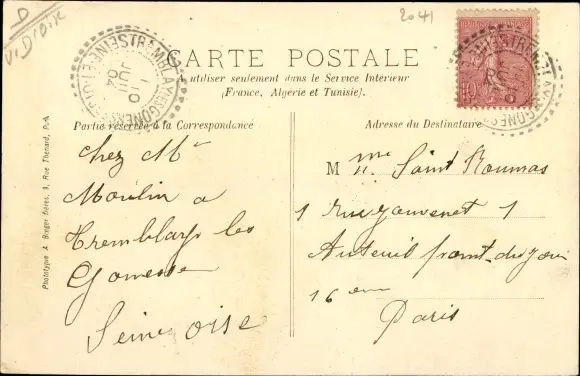 D
V. D'OIX
2041
CARTE POSTALE
A utiliser seulement dans le Service Intérieur
(France, Algérie et Tunisie).
Partie réservée à la Correspondance
Adresse du Destinataire
Phototype A. Breger frères, 9, Rue Thénard, P.-A.
TREMBLAY-LES-GONESSE
JUIL
04
10
Chez Mr
Moulin a
Tremblay les
Gonesse
Seine oise
M me Saint Roumas
1 rue jouvenet 1
Auteuil point du jour
16 eme
Paris